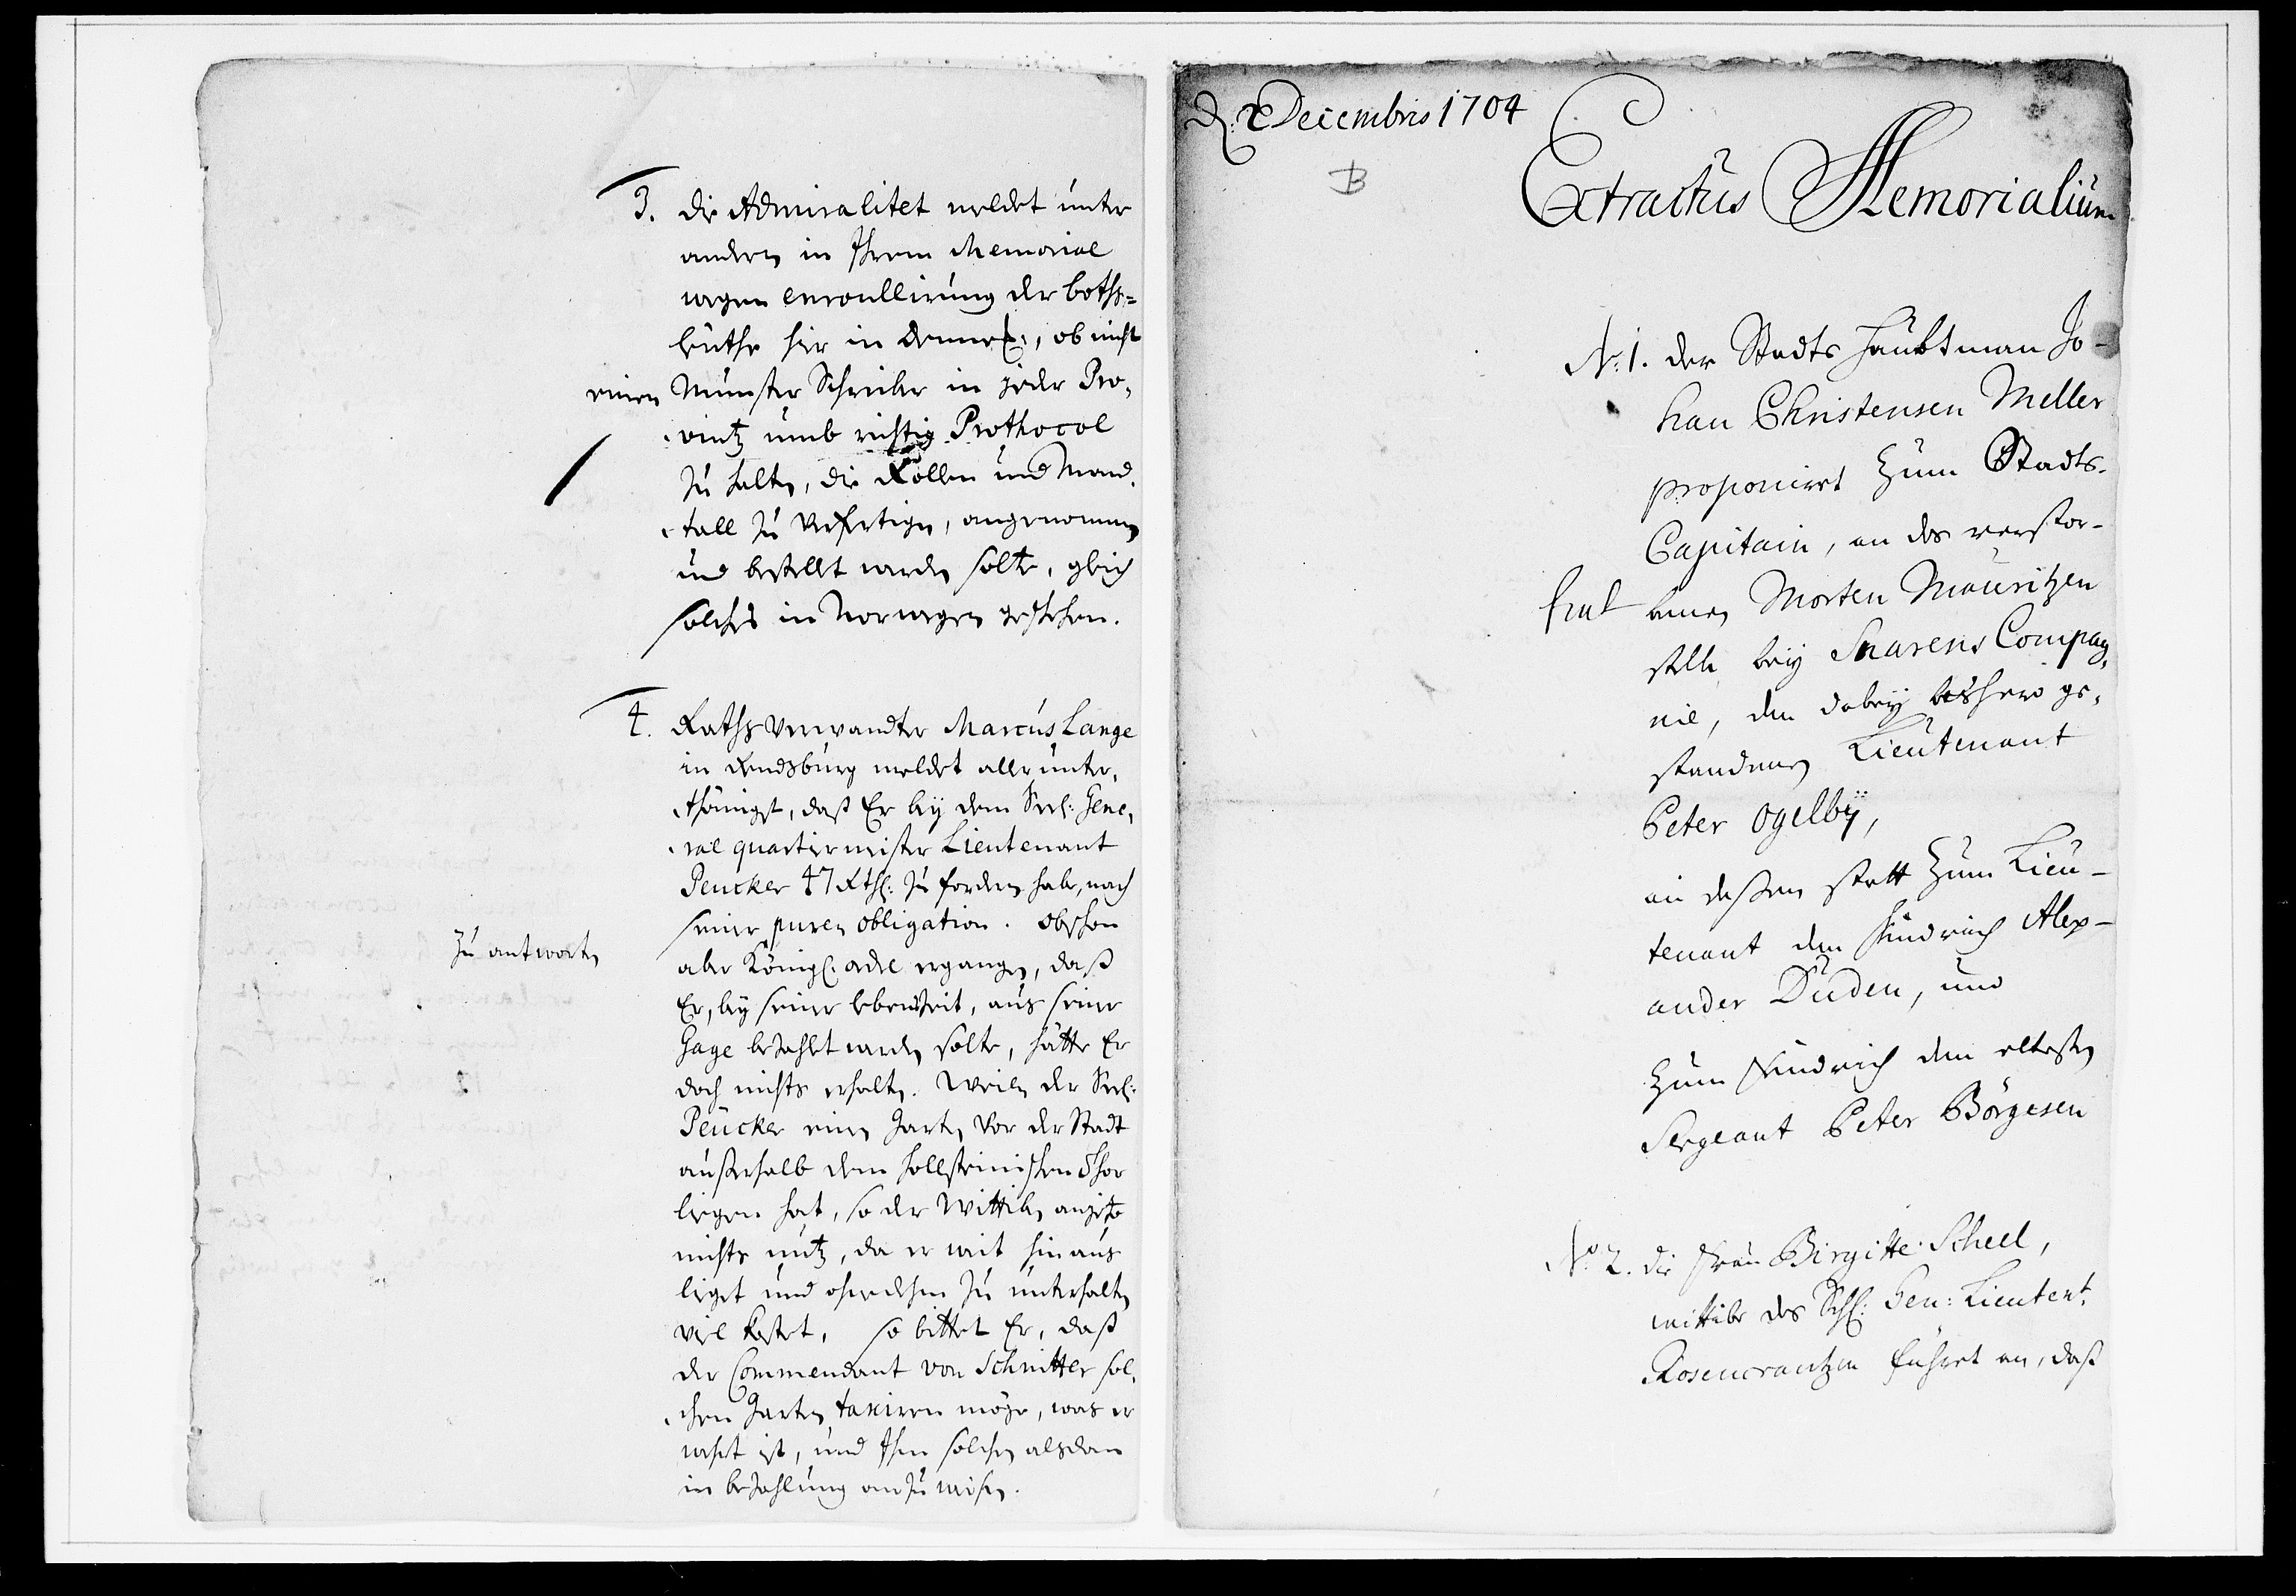 3. die Admiralitet meldet unter
andern in Ihrem Memorial
wegen enroullirung der Boths=
leuthe hier in Dennem:, ob nicht
einen Munster Schreiber in jeder Pro,
vintz umb richtig Prothocol
zu halten, die Rollen und Mand,
tall zu verfertigen, angenommen
und bestellt werden solte, gleich
solches in Norwegen geschehen.
4. Rathsverwandter Marcus Lange
in Rendsburg meldet aller unter,
thänigst, daß Er bey dem Seel: Gene,
ral quartiermeister Lieutenant
Peucker 47 Rthl: zu fordern habe, nach
seiner puren obligation. Obschon
zu antworten
aber Königl: ordre ergangen, daß
Er, bey seiner lebenszeit, aus seiner
Gage bezahlt werden solte, hätte Er
doch nichts erhalten. Weilen der Seel:
Peucker einen Garten vor der Stadt
außerhalb dem Hollsteinischen Thor
liegen hat, so der Wittiben anjetzo
nichts nutz, da er weit hinaus
lieget und ohnedehm zu unterhalten
viel kostet, so bittet Er, daß
der Commendant von Schnitter sol,
chen Garten taxiren möge, was er
wehrt ist, und Ihm solchen alsdan
in bezahlung anzuweisen.
D. 2 Decembris 1704
B
Extractus Memorialium
No: 1. der Stadts Haubtman Jo-
han Christensen Meller
proponirt zum Stadts-
Capitain, an des verstor-
fiat benen Morten Mauritzen
stelle bey Snarens Compag,
nie, den dabey bishero ge,
standenen Lieutenant
Peter Ogelby,
an deßen statt zum Lieu-
tenant den Fendrich Alex-
ander Duden, und
zum Fendrich den eltesten
Sergeant Peter Börgesen
No 2. die Frau Birgitte Scheel,
wittibe des Sehl: Gen: Lieutent.
Rosencrantzen führet an, daß